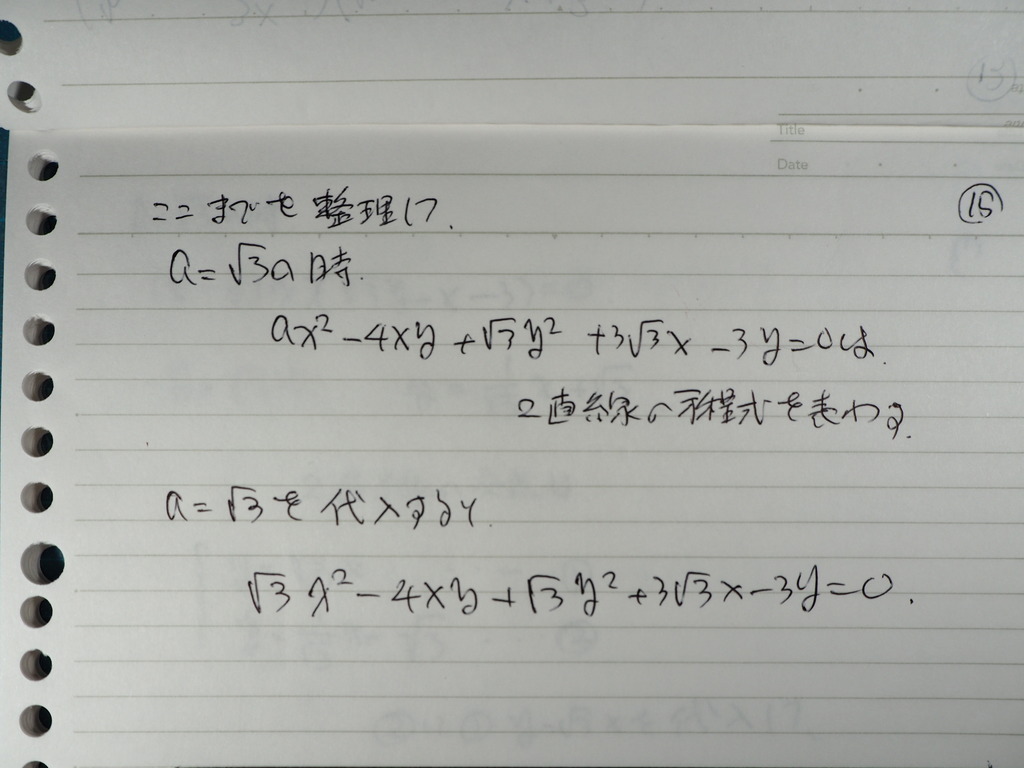 Title
Date
⑮
ここまでを整理して、
a=√3の時、
ax²-4xy+√3y²+3√3x-3y=0は、
2直線の方程式を表わす。
a=√3を代入すると、
√3x²-4xy+√3y²+3√3x-3y=0.